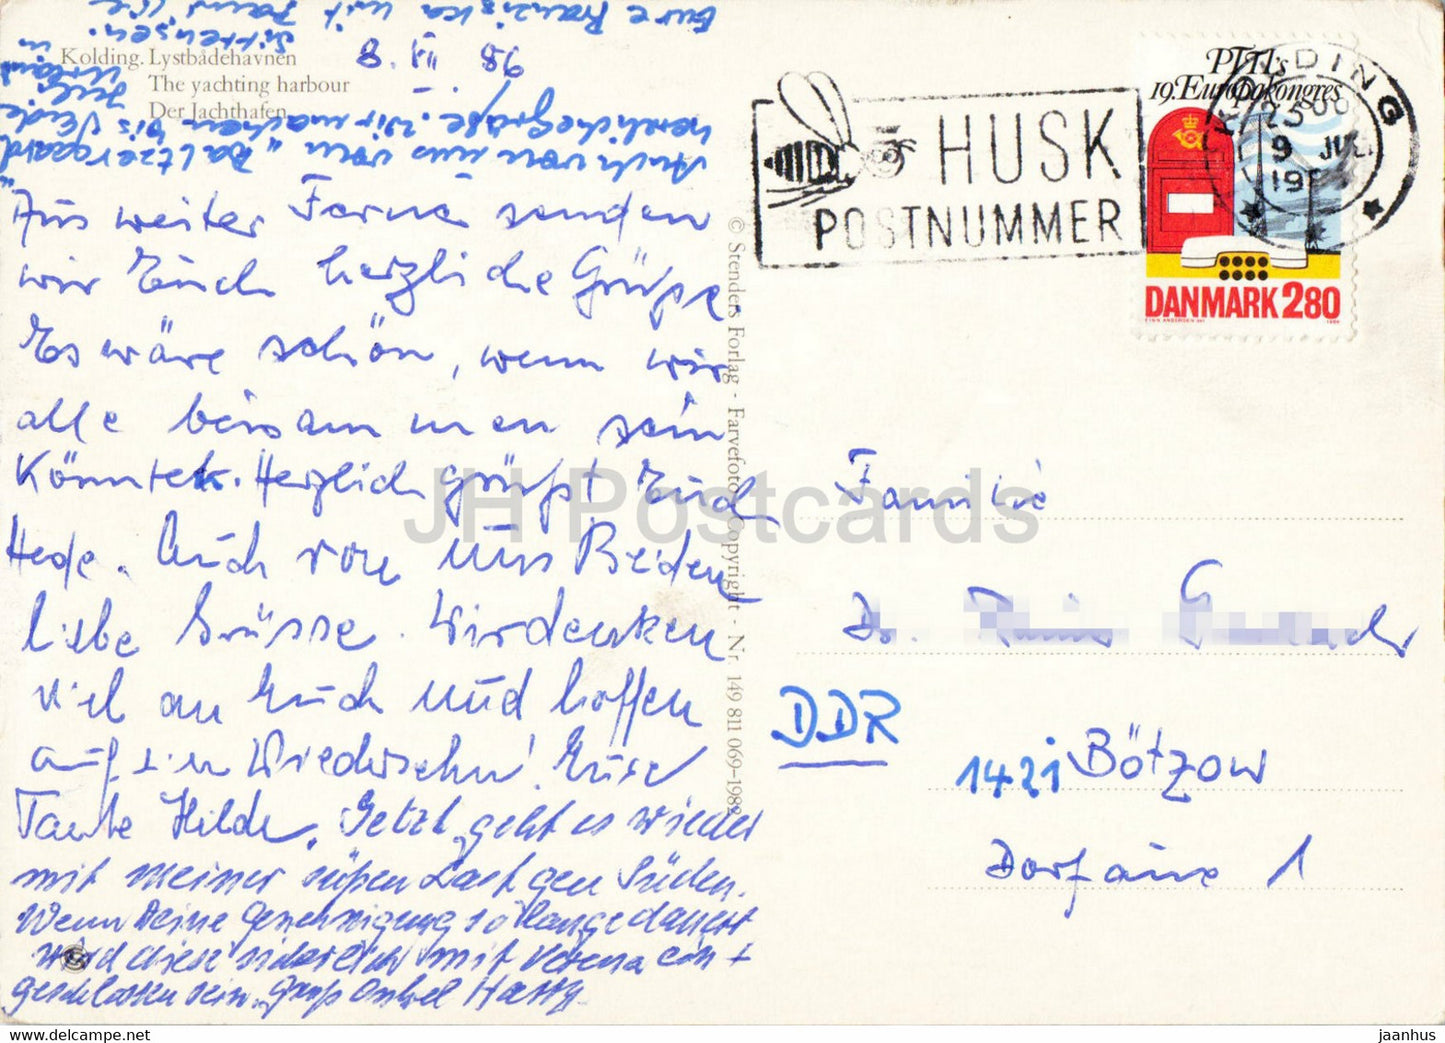 Eure Franziska mit
Sittensen.
98 III. 8
Kolding. Lystbådehavnen
The yachting harbour
Der Jachthafen
Auch von uns vom "Baltzersgaard"
herzliche Grüße. Wir machen bis Ende
Juli Urlaub in
Aus weiter Ferne senden
wir Euch herzliche Grüße.
Es wäre schön, wenn wir
alle beisammen sein
könnten. Herzlich grüßt Euch
Hede. Auch von uns Beiden
liebe Grüsse. Wir denken
viel an Euch und hoffen
auf ein Wiedersehn! Eure
Tante Hilde. Jetzt geht es wieder
mit meiner süßen Last gen Süden.
Wenn Deine Genehmigung so lange dauert
wird dieser sicherlich mit Verena ein
geschlossen sein. Gruß Onkel Harry.
© Stenders Forlag - Farvefoto Copyright - Nr. 149 811 069-1982
HUSK
POSTNUMMER
KOLDING
9 JUL.
PTTI's
19. Europakongres
DANMARK 280
Familie
Dr.
DDR
1421 Bötzow
Dorfaue 1
JH Postcards
hipstamp.com/store/jhpostcards
jaanhus